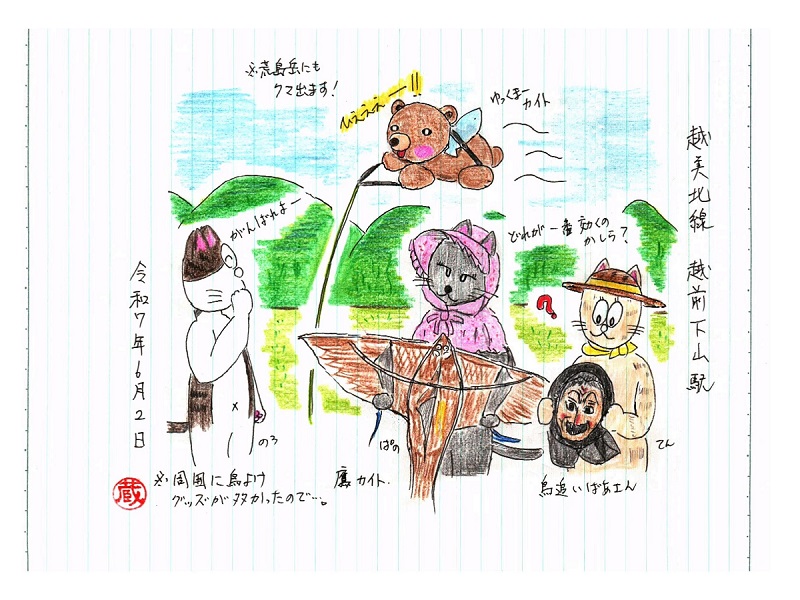 越美北線 越前下山駅
※荒島岳にも
クマ出ます!
ひえぇぇー!!
ゆっくまー
カイト
がんばれよー
どれが一番効くの
かしら?
?
令和7年6月2日
のろ
ぱの
てん
※周囲に鳥よけ
グッズが多かったので…。
鷹カイト.
鳥追いばあさん
蔵